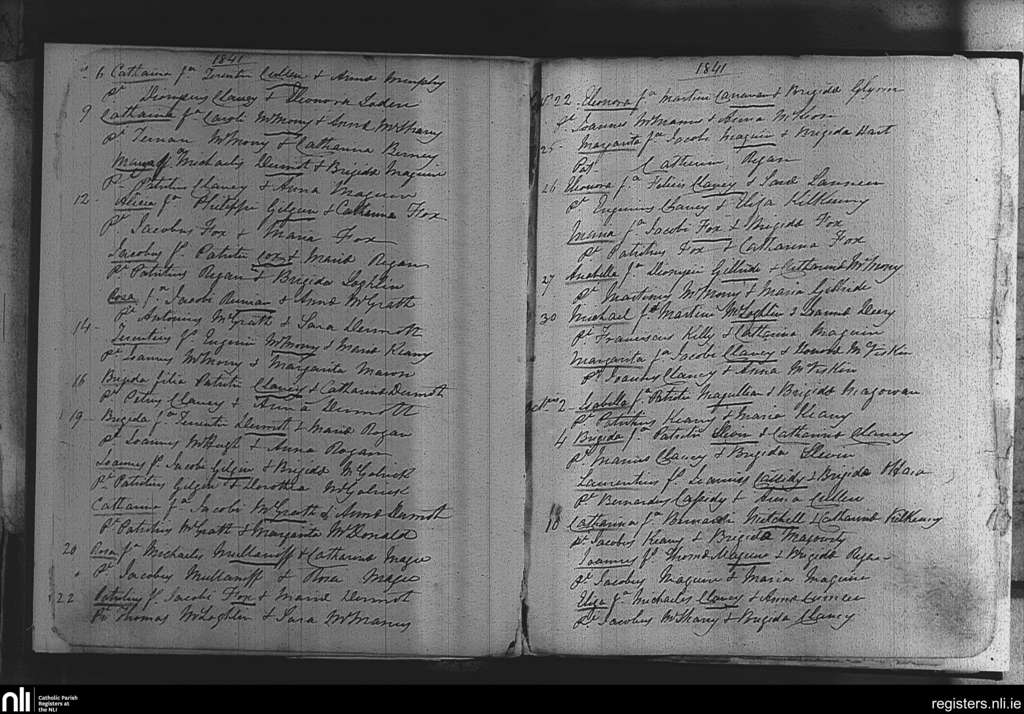 1841
6 Catharina fa Terentii Cullen & Anna Murphy
Pt Dionysius Clancy & Eleonora Loden
9 Catharina fa Caroli McMorry & Anna McSharry
Pt Ternan McMorry & Catharina Berney
Michaelis Dermot & Brigida Maguire
Pt Patritius Clancy & Anna Maguire
12 - Alicia fa Philippi Gilgun & Catharina Fox
Pt Jacobus Fox & Maria Fox
Jacobus fs Patritii Cox & Maria Regan
Pt Patritius Regan & Brigida Loghlin
Rosa fa Jacobi & Anna McGrath
Pt Antonius McGrath & Sara Dermott
14 - Terentius fs Eugenii McMorry & Maria Keany
Pt Joannes McMorry & Margarita
16 Brigida filia Patritii Clancy & Catharina Dermott
Pt Petrus Clancy & Anna Dermott
19 - Brigida fa Terentii Dermot & Maria Rogan
Pt Joannes McHugh & Anna Rogan
Joannes fs Jacobi Gilgun & Brigida McGolrick
Pt Patritius Gilgun & Dorothea McGolrick
Catharina fa Jacobi McGrath & Anna Dermott
Pt Patritius McGrath & Margarita McDonald
20 Rosa fa Michaelis Mullaniff & Catharina Magee
Pt Jacobus Mullaniff & Rosa Magee
22 Patritius fs Jacobi Fox & Maria Dermot
Pt Thomas McLoghlin & Sara McManus
1841
22 - Eleonora fa Martini Canavan & Brigida Glynn
Pt Joannes McManus & Anna McKeon
25 - Margarita fa Jacobi Maguire & Brigida Hart
Pat Catherin Regan
26 Eleonora fa Felicis Clancy & Sara
Pt Eugenius Clancy & Eliza Kilkenny
Maria fa Jacobi Fox & Brigida Fox
Pt Patritius Fox & Catharina Fox
27 Anabella fa Dionysii Gillride & Catharina McMorry
Pt Martinus McMorry & Maria Gillride
30 Michael fs Martini McLoghlin & Joanna Deery
Pt Franciscus Kelly & Catharina Maguire
Margarita fa Jacobi Clancy & Honora McFeskin
Pt Joannes Clancy & Anna McFeskin
2 - Isabella fa Patritii Magullian & Brigida Magowan
Pt Patritius Keany & Maria Keany
4 Brigida fa Patritii Slevin & Catharina Clancy
Pt Marius Clancy & Brigida Slevin
Laurentius fs Joannis Cassidy & Brigida OHara
Pt Bernardus Cassidy & Anna Cullen
10 Catharina fa Bernardi Mitchell & Catharina Kilkenny
Pt Jacobus Keany & Brigida Magourty
Joannes fs Thoma Maguire & Brigida Regan
Pt Jacobus Maguire & Maria Maguire
Eliza fa Michaelis Clancy & Anna
Pt Jacobus McSharry & Brigida Clancy
nli Catholic Parish
Registers at
the NLI
registers.nli.ie